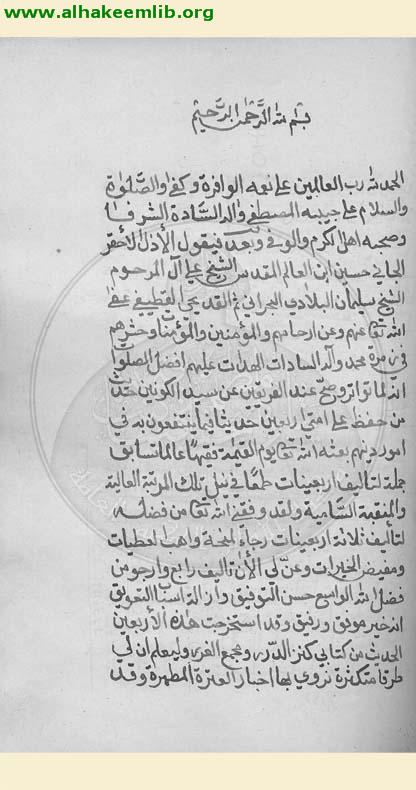 www.alhakeemlib.org
بسم الله الرحمن الرحيم
الحمد لله رب العالمين على نعمه الوافرة وكفى والصلوة
والسلام على حبيبه المصطفى واله السادة الشرفا
وصحبه اهل الكرم والوفى وبعد فيقول الأذل الأحقر
الجاني حسين ابن العالم المقدس الشيخ علي آل المرحوم
الشيخ سليمان البلادي البحراني ثم القديحي القطيفي عفى
الله تعا عنهم وعن ارحامهم والمؤمنين والمؤمنات وحشرهم
في زمرة محمد وآله السادات الهداة عليهم افضل الصلوات
انه لما تواتر وصح عند الفريقين عن سيد الكونين حديث
من حفظ على امتي اربعين حديثا فيما ينتفعون به في
امور دينهم بعثه الله تعا يوم القيمة فقيها عالما تسابق
جملة لتأليف اربعينات طمعا في نيل تلك المرتبة العالية
والمنقبة السامية ولقد وفقني الله تعا من فضله
لتأليف ثلاثة اربعينات رجاء لمنحة واهب العطيات
ومفيض الخيرات وعن لي الأن تأليف رابع وارجو من
فضل الله الواسع حسن التوفيق وازالة اسباب التعويق
انه خير موفق ورفيق وقد استخرجت هذه الأربعين
الحديث من كتابي كنز الدرر ومجمع الغرر وليعلم ان لي
طرقا متكثرة نروي بها اخبار العترة المطهرة وقد